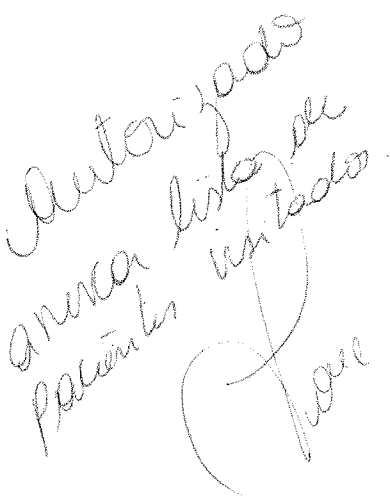 Autorizado
anexar lista de
pacientes visitado.